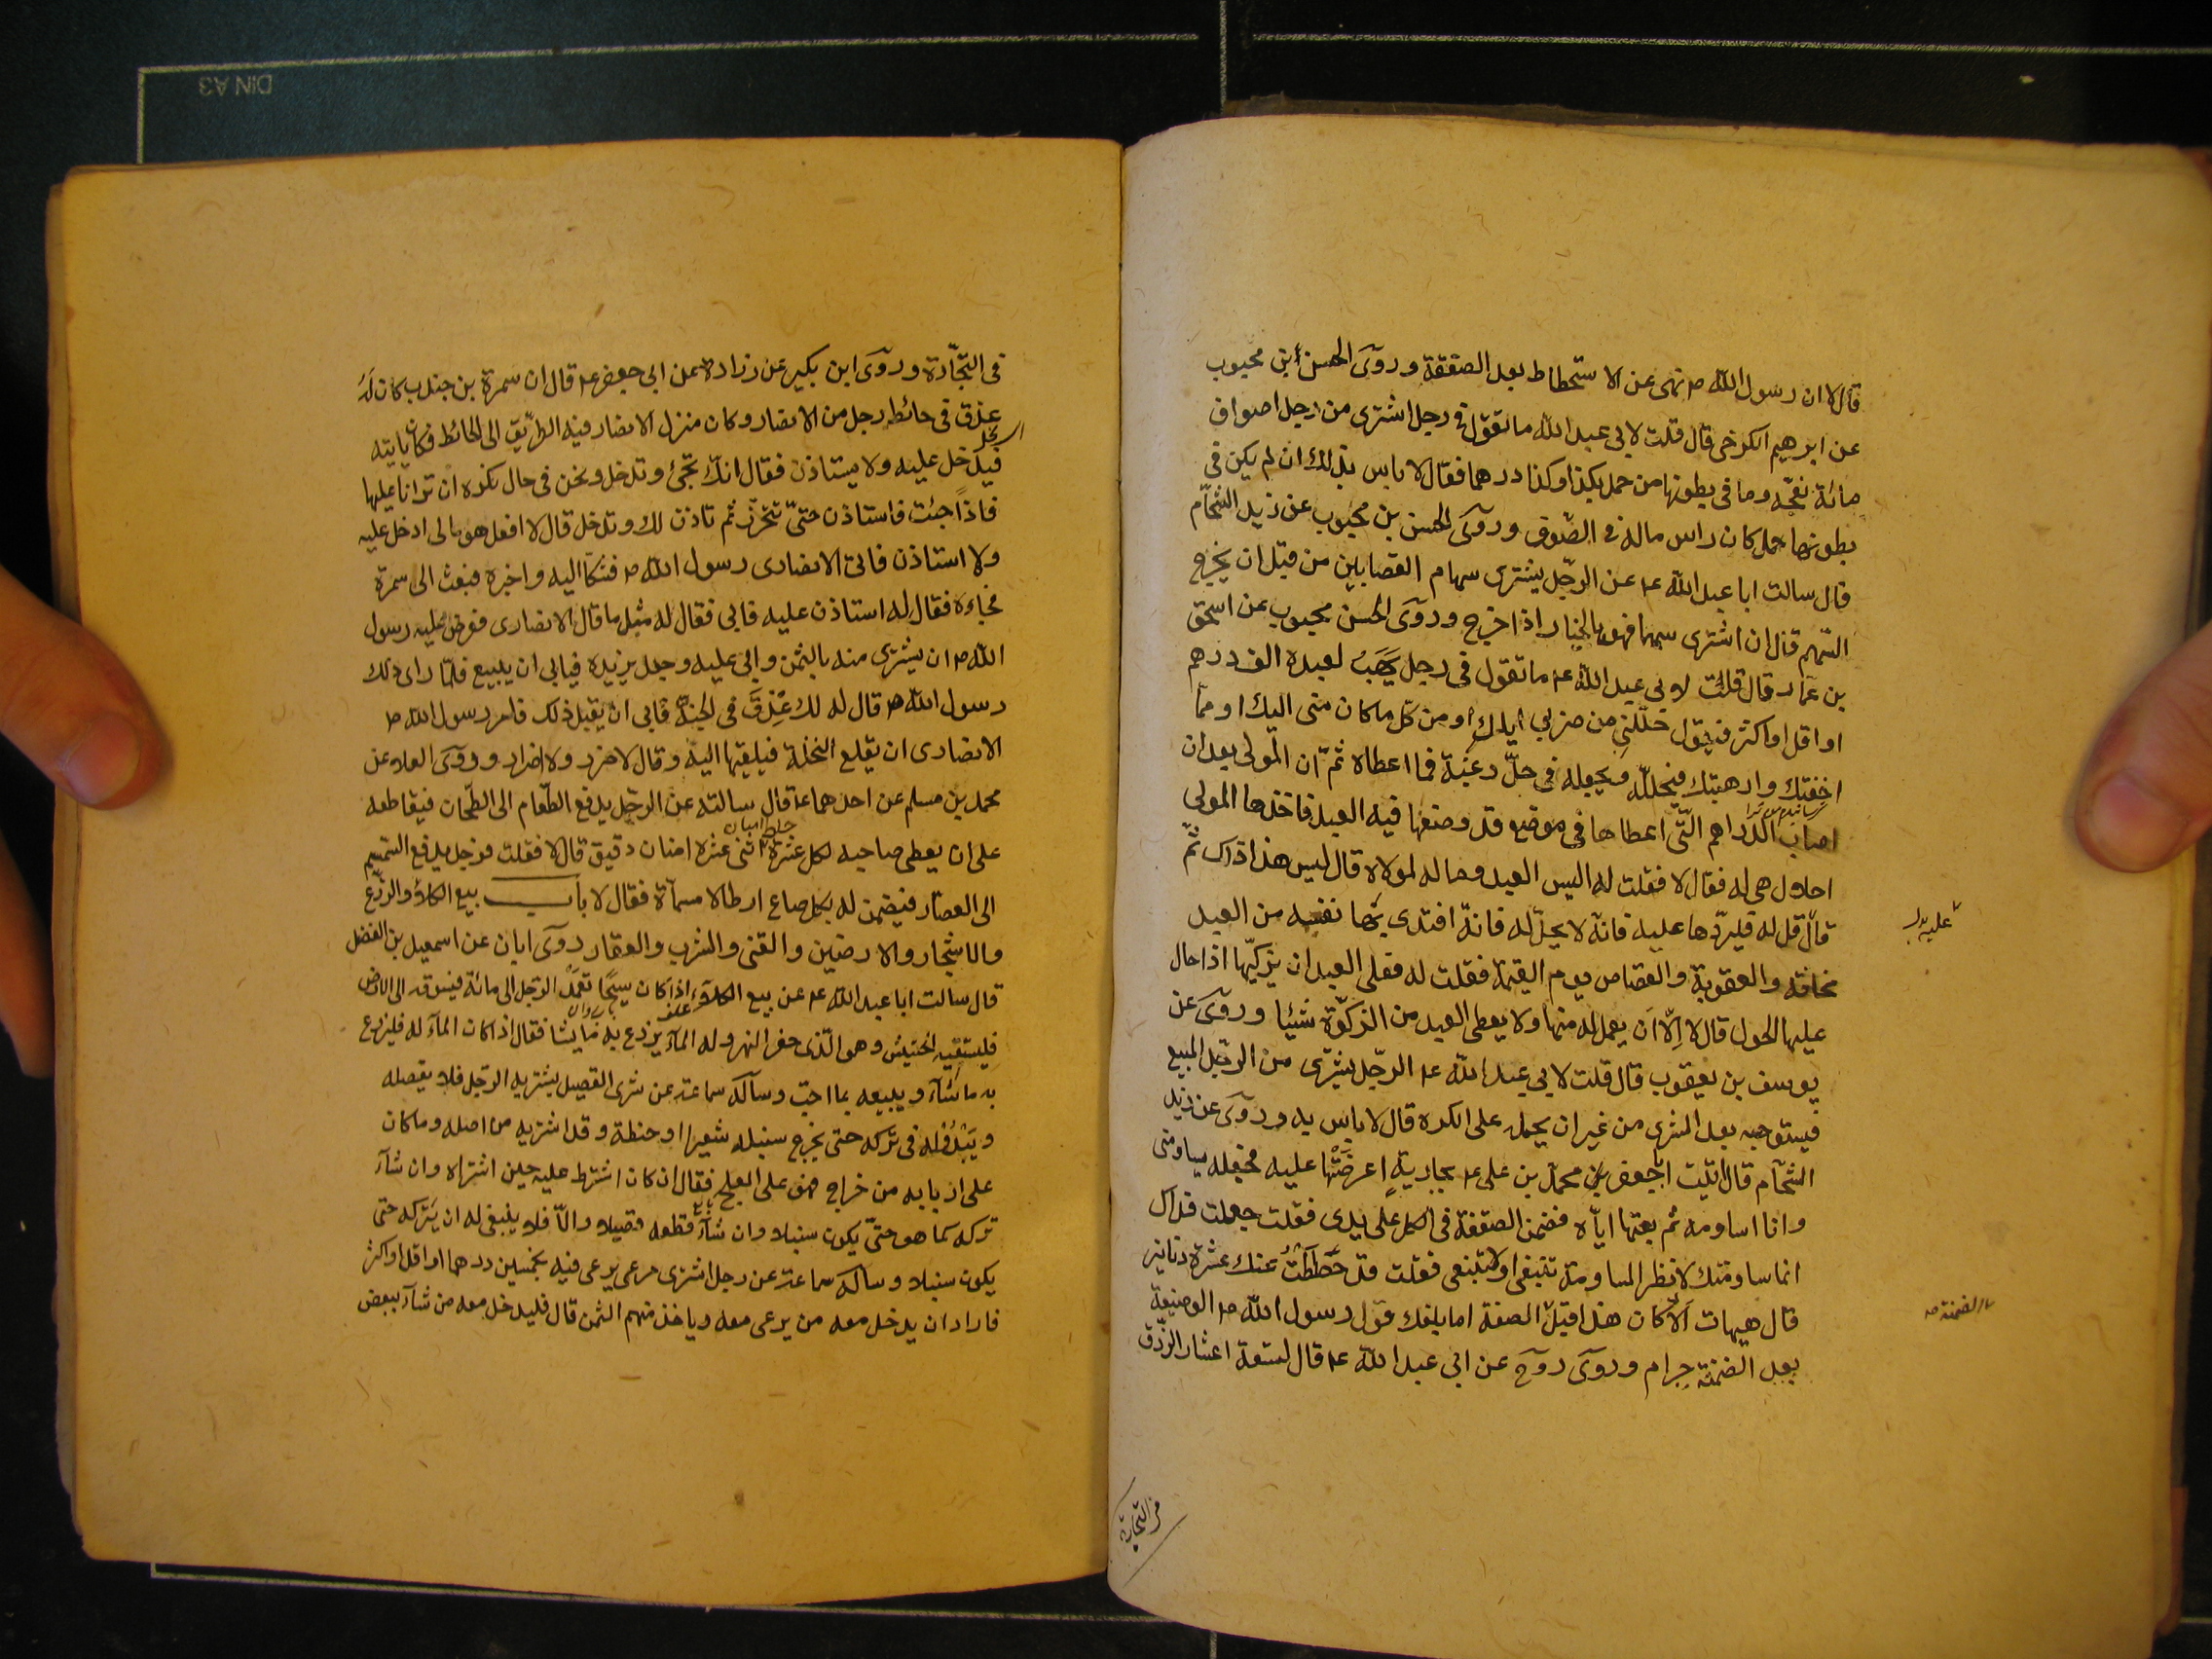 قال لا ان رسول الله ص نهى عن الاستحطاط بعد الصفقة وروى الحسن بن محبوب
عن ابرهيم الكرخى قال قلت لابى عبد الله ما تقول فى رجل اشترى من رجل اصواف
مائة نعجة وما فى بطونها من حمل بكذا وكذا درهما فقال لا باس بذلك ان لم يكن فى
بطونها حمل كان راس ماله فى الصوف وروى الحسن بن محبوب عن زيد الشحام
قال سالت ابا عبد الله ع عن الرجل يشترى سهام القصابين من قبل ان يخرج
السهم قال ان اشترى سهما فهو بالخيار اذا خرج وروى الحسن محبوب عن اسحق
بن عمار قال قلت لابى عبد الله ع ما تقول فى رجل يهب لعبده الف درهم
او اقل او اكثر فيقول حللنى من ضربى اياك او من كل ما كان منى اليك او مما
اخفتك وارهبتك فيحلله ويجعله فى حل رغبة فيما اعطاه ثم ان المولى بعد ان
اصاب الدراهم التى اعطاها فى موضع قد وضعها فيه العبد فاخذها المولى
احلال هى له فقال لا فقلت له اليس العبد وماله لمولاه قال ليس هذا ذاك ثم
قال قل له فليردها عليه فانه لا يحل له فانه افتدى بها نفسه من العبد
عليه
مخافة والعقوبة والقصاص يوم القيمة فقلت له فعلى العبد ان يزكيها اذا حال
عليها الحول قال لا الا ان يعمل له منها ولا يعطى العبد من الزكوة شيئا وروى عن
يوسف بن يعقوب قال قلت لابى عبد الله ع الرجل يشترى من الرجل المبيع
فيستوجبه بعد الشرى من غير ان يحمله على الكره قال لا باس به وروى عن زيد
الشحام قال اتيت ابا جعفر بن محمد بن على ع بجارية اعرضتها عليه فجعله يساومنى
وانا اساومه ثم بعتها اياه فضمن الصفقة فى الكل على يدى فقلت جعلت فداك
انما ساومتك لانظر المساومة تنبغى او لا تنبغى فقلت قد حططت عنك عشرة دنانير
قال هيهات الا كان هذا قبل الصفة اما بلغك قول رسول الله ص الوضيعة
الضمنة
بعد الضمنة حرام وروى روح عن ابى عبد الله ع قال لستعة اعشار الرزق
من التجارة
فى التجارة وروى ابن بكير عن زرارة عن ابى جعفر ع قال ان سمرة بن جندب كان له
عذق فى حائط رجل من الانصار وكان منزل الانصار فيه الطريق الى الحائط فكان ياتيه
فيدخل عليه ولا يستاذن فقال انك تجئ وتدخل ونحن فى حال نكره ان ترانا عليها
فاذا جئت فاستاذن حتى نتحرز ثم ناذن لك وتدخل قال لا افعل هو مالى ادخل عليه
ولا استاذن فاتى الانصارى رسول الله ص فشكا اليه واخبره فبعث الى سمرة
فجاءه فقال له استاذن عليه فابى فقال له مثل ما قال الانصارى فعرض عليه رسول
الله ص ان يشترى منه بالثمن وابى عليه وجعل يزيده فيابى ان يبيع فلما راى ذلك
رسول الله ص قال له لك عذق فى الجنة فابى ان يقبل ذلك فامر رسول الله ص
الانصارى ان يقلع النخلة فيلقيها اليه وقال لا ضرر ولا اضرار وروى العلاء عن
محمد بن مسلم عن احدهما ع قال سالته عن الرجل يدفع الطعام الى الطحان فيقاطعه
على ان يعطى صاحبه لكل عشرة اثنى عشرة امنان دقيق قال لا فقلت فرجل يدفع السمسم
الى العصار فيضمن له بكل صاع ارطالا مسماة فقال لا باب بيع الكلاء والزرع
والاشجار والارضين والقنى والشرب والعقار روى ابان عن اسمعيل بن الفضل
قال سالت ابا عبد الله ع عن بيع الكلاء اذا كان سيحا يعمد الرجل الى مائة فيسوقه الى الارض
فليسقيه الحشيش وهو الذى حفر النهر وله الماء يزرع به ما يشا فقال اذا كان الماء له فليزرع
به ما شاء ويبيعه بما احب وسأله سماعة عن شرى القصيل يشتريه الرجل فلا يقصله
ويبدو له فى تركه حتى يخرج سنبله شعيرا او حنطة وقد اشتريه من اصله وما كان
على اربابه من خراج فهو على العلج فقال ان كان اشترط عليه حين اشتراه وان شاء
تركه كما هو حتى يكون سنبلا وان شاء قطعه قصيلا والا فلا ينبغى له ان يتركه حتى
يكون سنبلا وساله سماعة عن رجل اشترى مرعى يرعى فيه بخمسين درهما او اقل او اكثر
فاراد ان يدخل معه من يرعى معه وياخذ منهم الثمن قال فليدخل معه من شاء ببعض